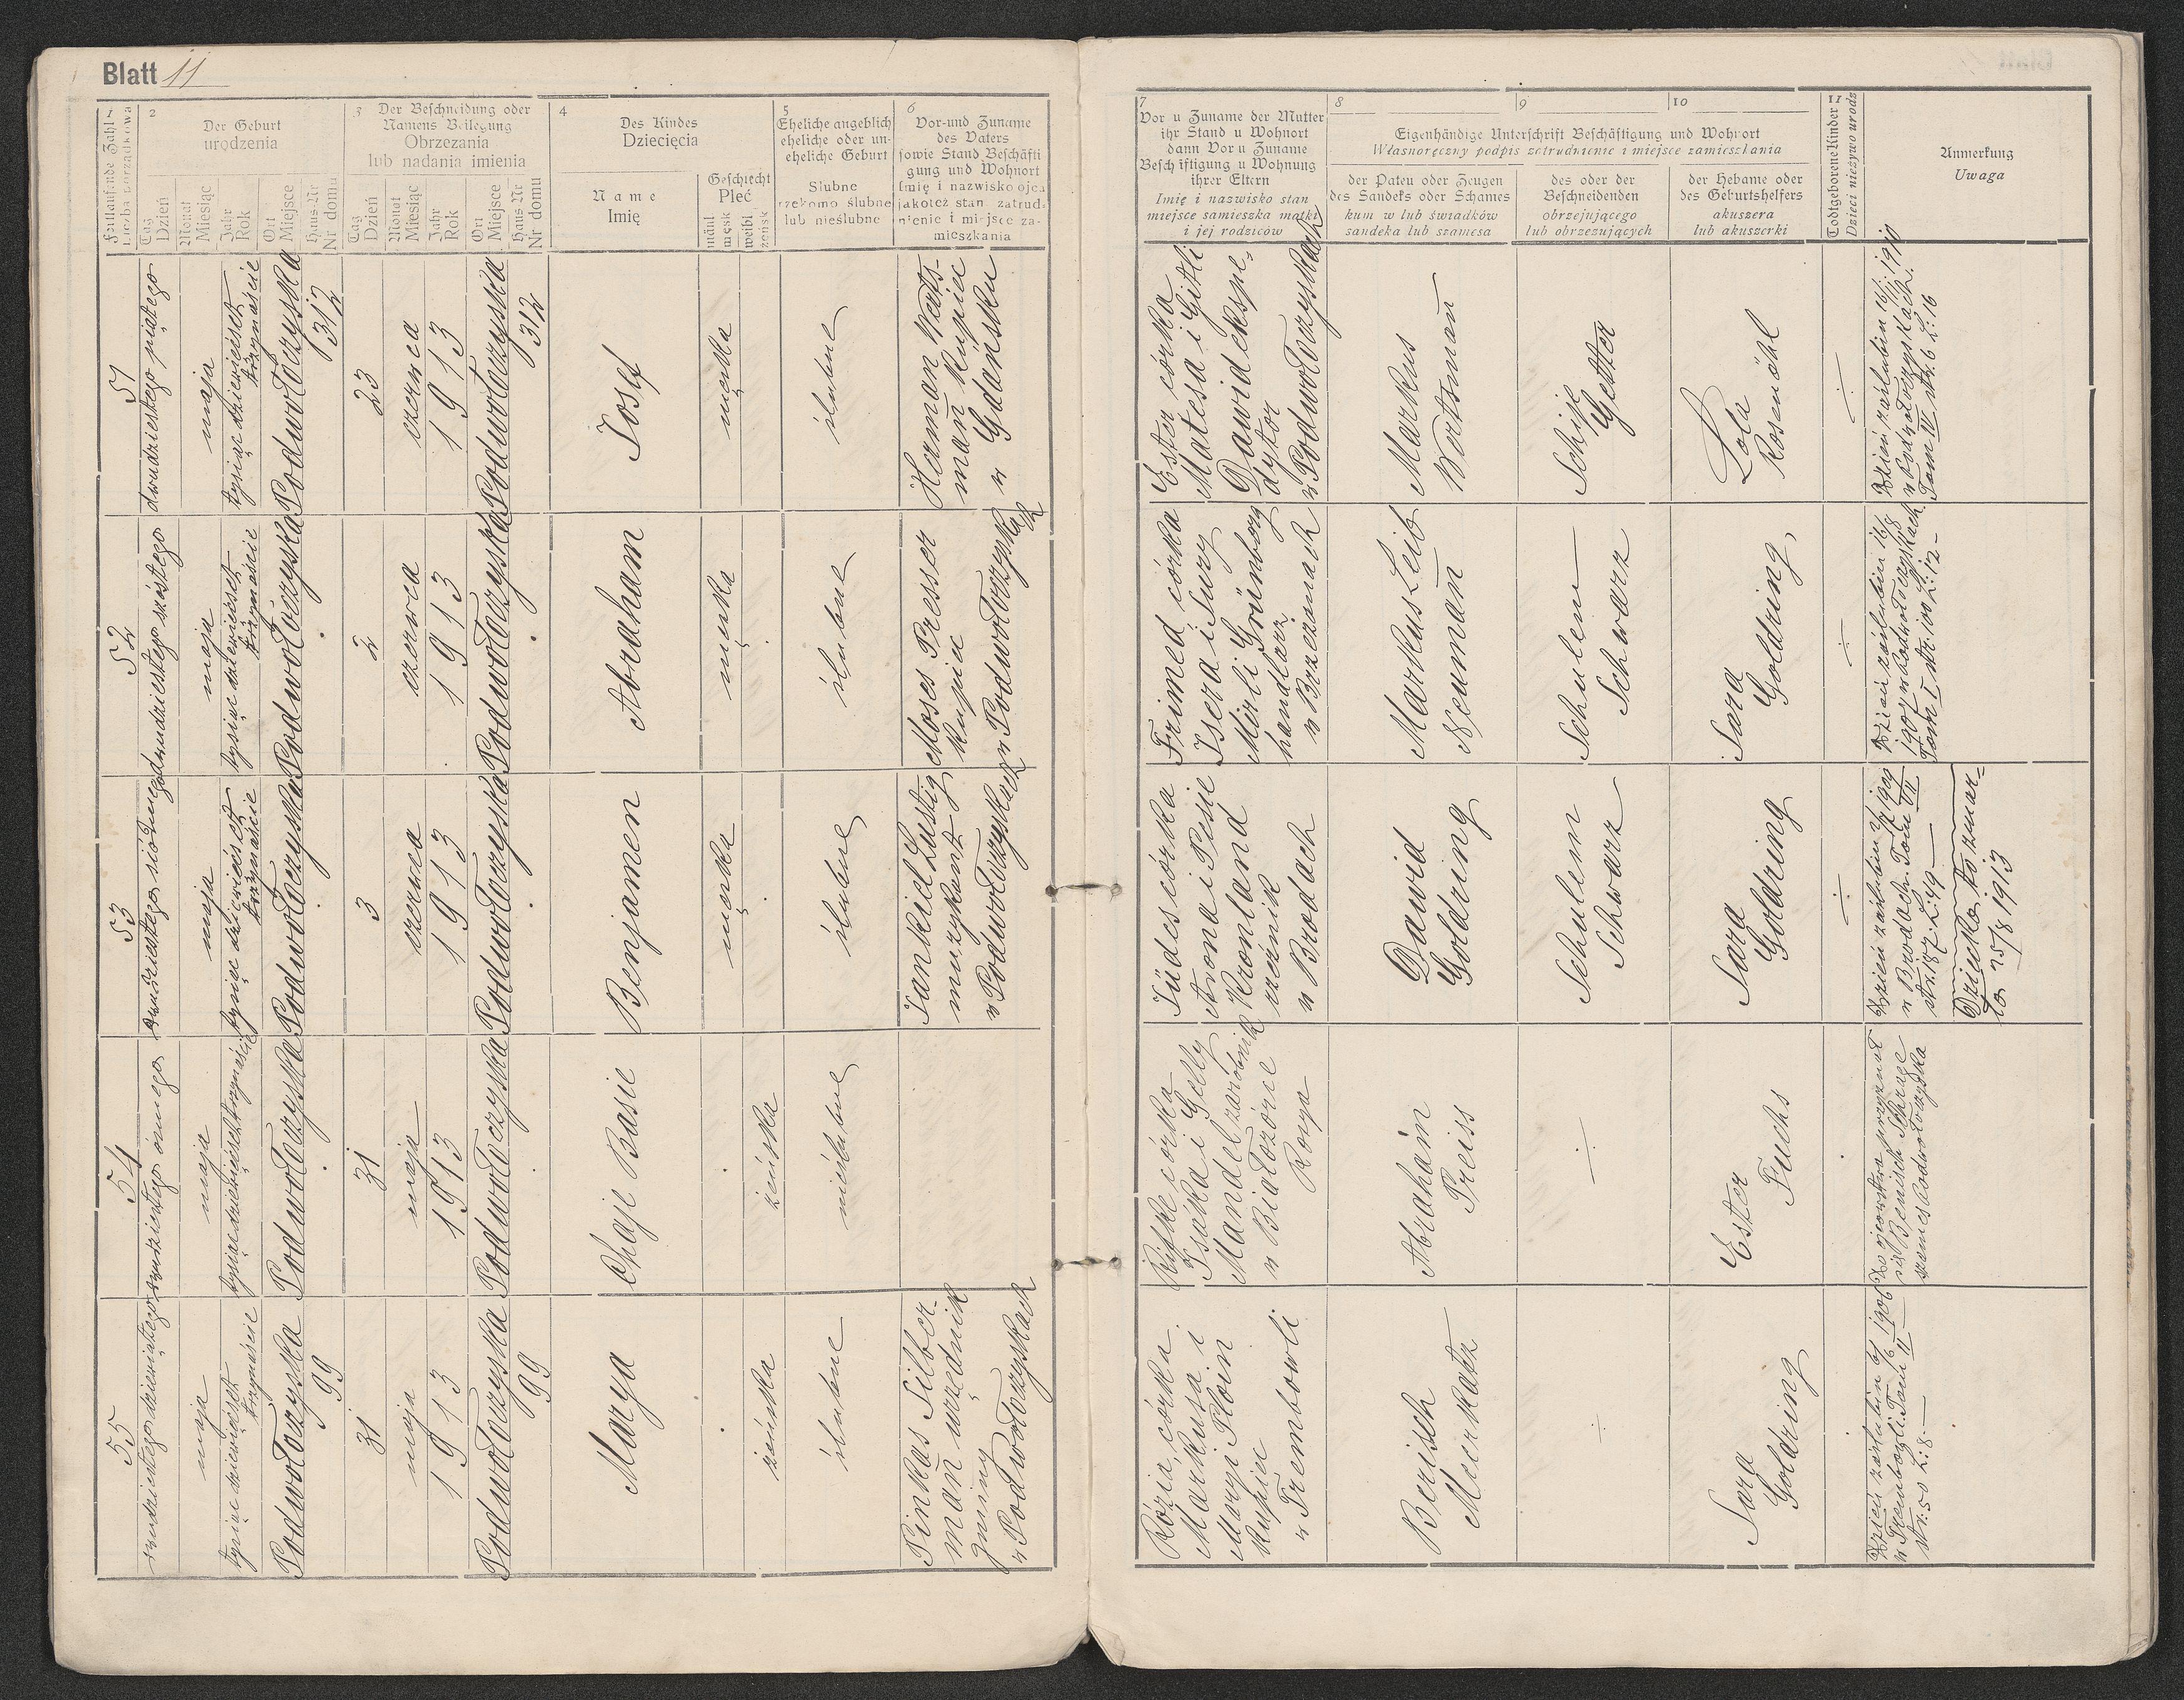 Blatt 11
Fortlaufende Zahl
Liczba porządkowa
2
Der Geburt
urodzenia
Tag
Dzień
Monat
Miesiąc
Jahr
Rok
Ort
Miejsce
Haus-Nr
Nr domu
3 Der Beschneidung oder
Namens Beilegung
Obrzezania
lub nadania imienia
Tag
Dzień
Monat
Miesiąc
Jahr
Rok
Ort
Miejsce
Haus Nr
Nr domu
4
Des Kindes
Dziecięcia
Name
Imię
Geschlecht
Płeć
mänl
męsk
weibl
żeńsk
5
Eheliche angeblich
eheliche oder un-
eheliche Geburt
Ślubne
rzekomo ślubne
lub nieślubne
6
Vor-und Zuname
des Vaters
sowie Stand Beschäfti
gung und Wohnort
Imię i nazwisko ojca
jakoteż stan zatrud-
nienie i miejsce za-
mieszkania
7
Vor u Zuname der Mutter
ihr Stand u Wohnort
dann Vor u Zuname
Besch iftigung u Wohnung
ihrer Eltern
Imię i nazwisko stan
miejsce samieszka matki
i jej rodziców
8
9
10
Eigenhändige Unterschrift Beschäftigung und Wohnort
Własnoręczny podpis zatrudnienie i miejsce zamieszkania
der Paten oder Zeugen
des Sandeks oder Schames
kum w lub świadków
sandeka lub szamesa
des oder der
Beschneidenden
obrzejującego
lub obrzezujących
der Hebame oder
des Geburtshelfers
akuszera
lub akuszerki
11
Todtgeborene Kinder
Dzieci nieżywo urodz
Anmerkung
Uwaga
51
dwudziestego piątego
maja
tysiąc dziewięćset
trzynaście
Podwołoczyska
312
23
czerwca
1913
Podwołoczyska
312
Josef
męska
ślubne
Herman Werts-
man kupiec
w Gdańsku
Ester córka
Matesa i Gitli
Dawid ekspe-
dytor
w Podwołoczyskach
Markus
Wertsman
Schije
Getter
Lola
Rosmöhl
÷
Dzień zaślubin 16/1 1910
w Podwołoczyskach
Tom IV str. 6 L: 16
52
dwudziestego szóstego
maja
tysiąc dziewięćset
trzynaście
Podwołoczyska
2
czerwca
1913
Podwołoczyska
Abraham
męska
ślubne
Moses Presser
kupiec
w Podwołoczyskach
Frimed córka
Isera i Sury
Mirli Grünberg
handlarz
w Brzeżanach
Markus Leib
Neuman
Schulem
Schwarz
Sara
Goldring
÷
Dzień zaślubin 18/8
1907 w Podwołoczyskach
Tom I str. 100 L: 12
53
dwudziestego siódmego
maja
tysiąc dziewięćset
trzynaście
Podwołoczyska
3
czerwca
1913
Podwołoczyska
Benjamen
męska
ślubne
Jankiel Lustig
muzykant
w Podwołoczyskach
Jüdes córka
Arona i Pesie
Kronland
rzeźnik
w Brodach
Dawid
Goldring
Schulem
Schwarz
Sara
Goldring
÷
w Brodach Tom VII
str. 187 L: 49
Dziecko to zmar-
ło 25/8 1913
54
dwudziestego ósmego
maja
tysiąc dziewięćset trzynaście
Podwołoczyska
31
maja
1913
Podwołoczyska
Chaje Basie
żeńska
nieślubne
Rifke córka
Isaka i Gelly
Mandel zarobnik
w Białozórce
Rosya
Abraham
Preiss
÷
Ester
Fuchs
Do ojcowstwa przyznał
się Benisch Schrage
szames Podwołoczyska
55
dwudziestego dziewiątego
maja
tysiąc dziewięćset
trzynaście
Podwołoczyska
99
31
maja
1913
Podwołoczyska
99
Marya
żeńska
ślubne
Pinkas Silber-
man urzędnik
gminy
w Podwołoczyskach
Rózia córka
Markusa i
Maryi Płoin
kupiec
w Trembowli
Berisch
Meerkatz
÷
Sara
Goldring
Dzień zaślubin 6/6 1906
w Trembowli Tom II
str: 50 L: 8